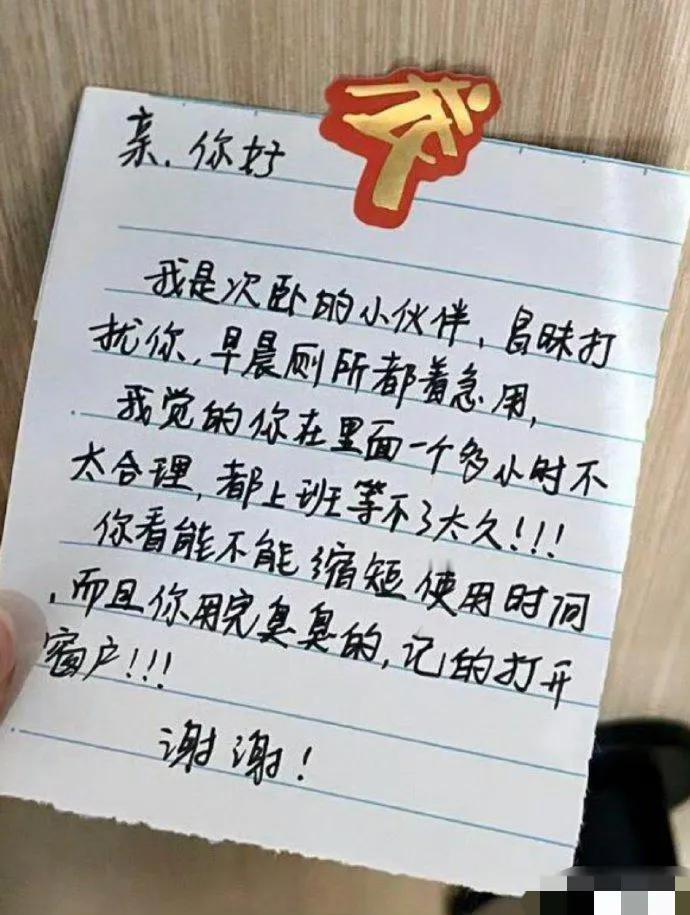 亲、你好
我是次卧的小伙伴，冒昧打
扰你，早晨厕所都着急用，
我觉的你在里面一个多小时不
太合理，都上班等不了太久！！！
你看能不能缩短使用时间
，而且你用完臭臭的，记的打开
窗户！！！
谢谢！